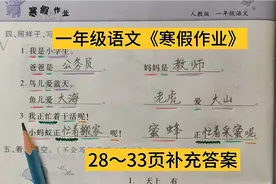 寒假作业
人教版 一年级语文
四、照样子，写
一年级语文《寒假作业》
1. 我是小学生。
爸爸是 公务员 。 妈妈是 教师
2. 鸟儿爱蓝天。
鱼儿爱 大海 。 老虎 爱 大山
3. 我正忙着干活呢！
小蚂蚁正忙着搬家呢！ 蜜蜂 正忙着采蜜呢！
28～33页补充答案